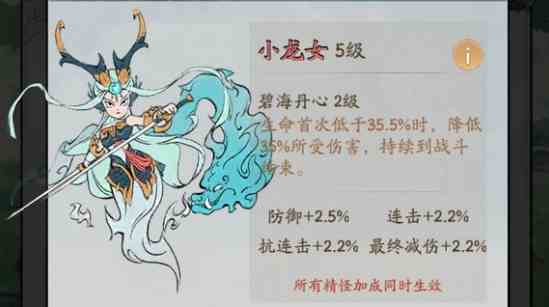 小龙女 5级
碧海丹心 2级
生命首次低于35.5%时，降低
35%所受伤害，持续到战斗
结束。
防御+2.5% 连击+2.2%
抗连击+2.2% 最终减伤+2.2%
所有精怪加成同时生效